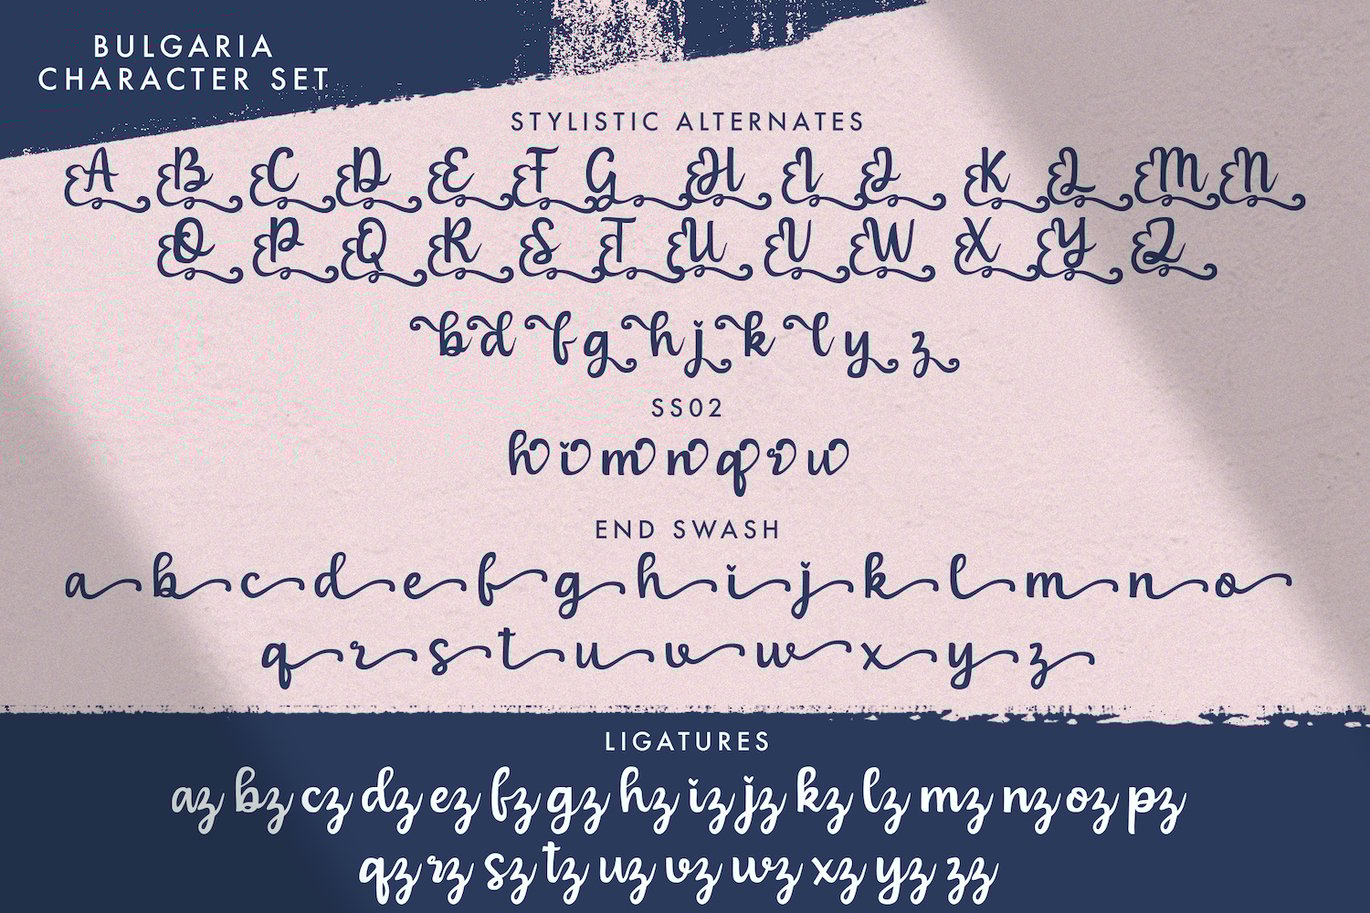 BULGARIA
CHARACTER SET
STYLISTIC ALTERNATES
A B C D E F G H I J K L M N
O P Q R S T U V W X Y Z
b d f g h j k l y z
SS02
h i m n q r w
END SWASH
a b c d e f g h i j k l m n o
q r s t u v w x y z
LIGATURES
az bz cz dz ez fz gz hz iz jz kz lz mz nz oz pz
qz rz sz tz uz vz wz xz yz zz